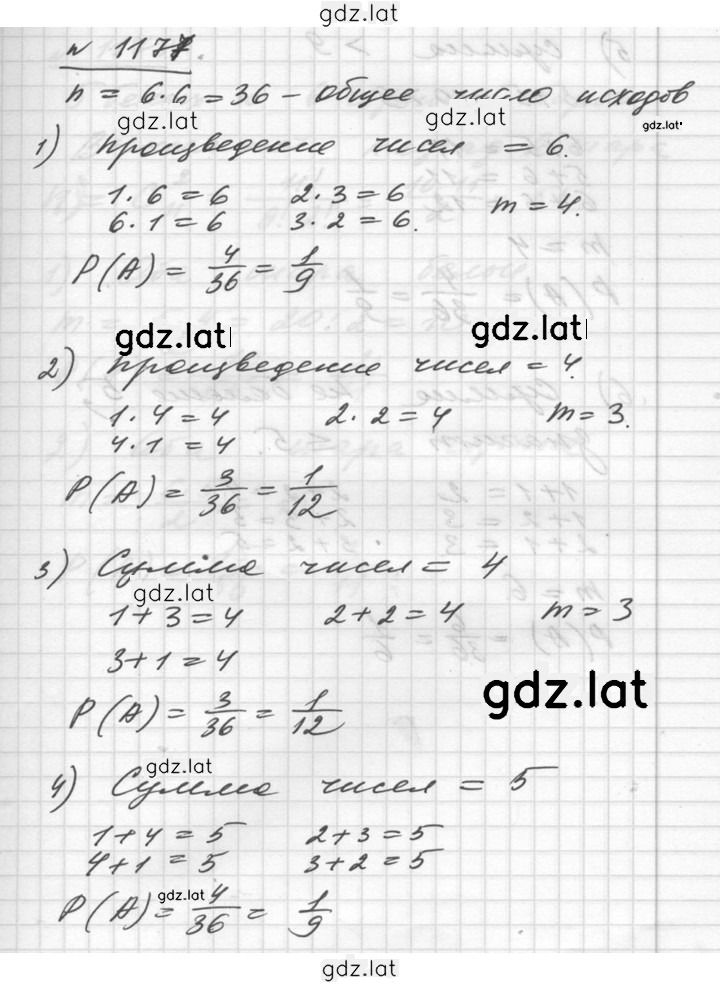 gdz.lat
№ 1177.
n = 6·6 = 36 – общее число исходов
gdz.lat gdz.lat gdz.lat
1) произведение чисел = 6.
1·6 = 6 2·3 = 6 m = 4.
6·1 = 6 3·2 = 6.
P(A) = 4/36 = 1/9
gdz.lat gdz.lat
2) произведение чисел = 4.
1·4 = 4 2·2 = 4 m = 3.
4·1 = 4
P(A) = 3/36 = 1/12
3) Сумма чисел = 4
gdz.lat
1+3 = 4 2+2 = 4 m = 3
3+1 = 4
gdz.lat
P(A) = 3/36 = 1/12
gdz.lat
4) Сумма чисел = 5
1+4 = 5 2+3 = 5
4+1 = 5 3+2 = 5
gdz.lat
P(A) = 4/36 = 1/9
gdz.lat